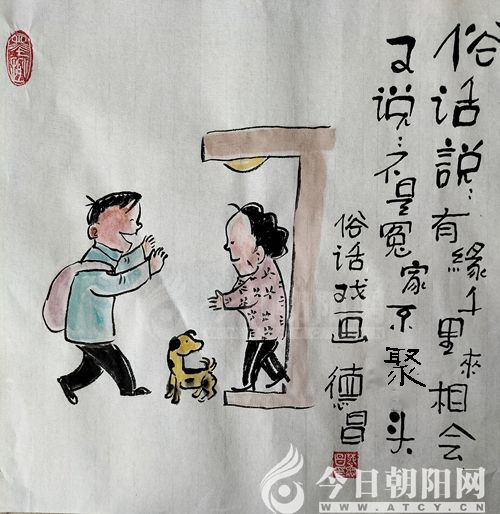 俗话説:有緣千里來相会
又说:不是冤家不聚头
俗话戏画 德昌
今日朝阳网
WWW.ATCY.CN